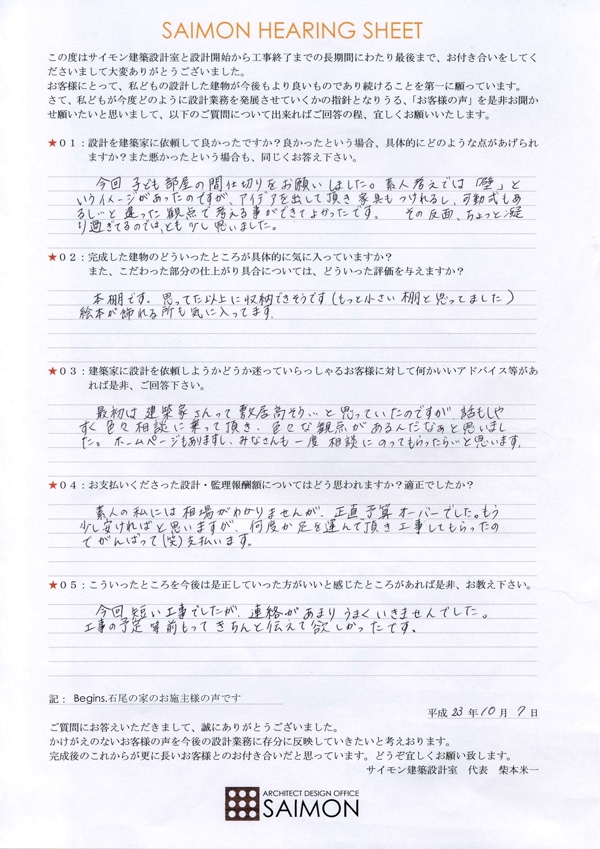 SAIMON HEARING SHEET
この度はサイモン建築設計室と設計開始から工事終了までの長期間にわたり最後まで、お付き合いをしてく
ださいまして大変ありがとうございました。
お客様にとって、私どもの設計した建物が今後もより良いものであり続けることを第一に願っています。
さて、私どもが今度どのように設計業務を発展させていくかの指針となりうる、「お客様の声」を是非お聞か
せ願いたいと思いまして、以下のご質問について出来ればご回答の程、宜しくお願いいたします。
★０１：設計を建築家に依頼して良かったですか？良かったという場合、具体的にどのような点があげられ
ますか？また悪かったという場合も、同じくお答え下さい。
今回 子ども部屋の間仕切りをお願いしました。素人考えでは「壁」と
いうイメージがあったのですが、アイデアを出して頂き家具もつけれるし、可動式もあ
るしいと違った観点で考える事ができてよかったです。 その反面、ちょっと凝
り過ぎてるのでは、とも少し思いました。
★０２：完成した建物のどういったところが具体的に気に入っていますか？
また、こだわった部分の仕上がり具合については、どういった評価を与えますか？
本棚です。思ってた以上に収納できそうです（もっと小さい棚と思ってました）
絵本が飾れる所も気に入ってます。
★０３：建築家に設計を依頼しようかどうか迷っていらっしゃるお客様に対して何かいいアドバイス等があ
れば是非、ご回答下さい。
最初は建築家さんって敷居高そうぃと思っていたのですが、話もしや
すく色々相談に乗って頂き、色々な観点があるんだなぁと思いまし
た。ホームページもありますし、みなさんも一度相談にのってもらったらいと思います。
★０４：お支払いくださった設計・監理報酬額についてはどう思われますか？適正でしたか？
素人の私には相場がわかりませんが、正直予算オーバーでした。もう
少し安ければと思いますが、何度か足を運んで頂き工事してもらったの
でがんばって（笑）支払います。
★０５：こういったところを今後は是正していった方がいいと感じたところがあれば是非、お教え下さい。
今回短い工事でしたが、連絡があまりうまくいきませんでした。
工事の予定等前もってきちんと伝えて欲しかったです。
記： Begins.石尾の家のお施主様の声です
平成 23 年 10 月 7 日
ご質問にお答えいただきまして、誠にありがとうございました。
かけがえのないお客様の声を今後の設計業務に存分に反映していきたいと考えおります。
完成後のこれからが更に長いお客様とのお付き合いだと思っています。どうぞ宜しくお願い致します。
サイモン建築設計室 代表 柴本米一
ARCHITECT DESIGN OFFICE
SAIMON